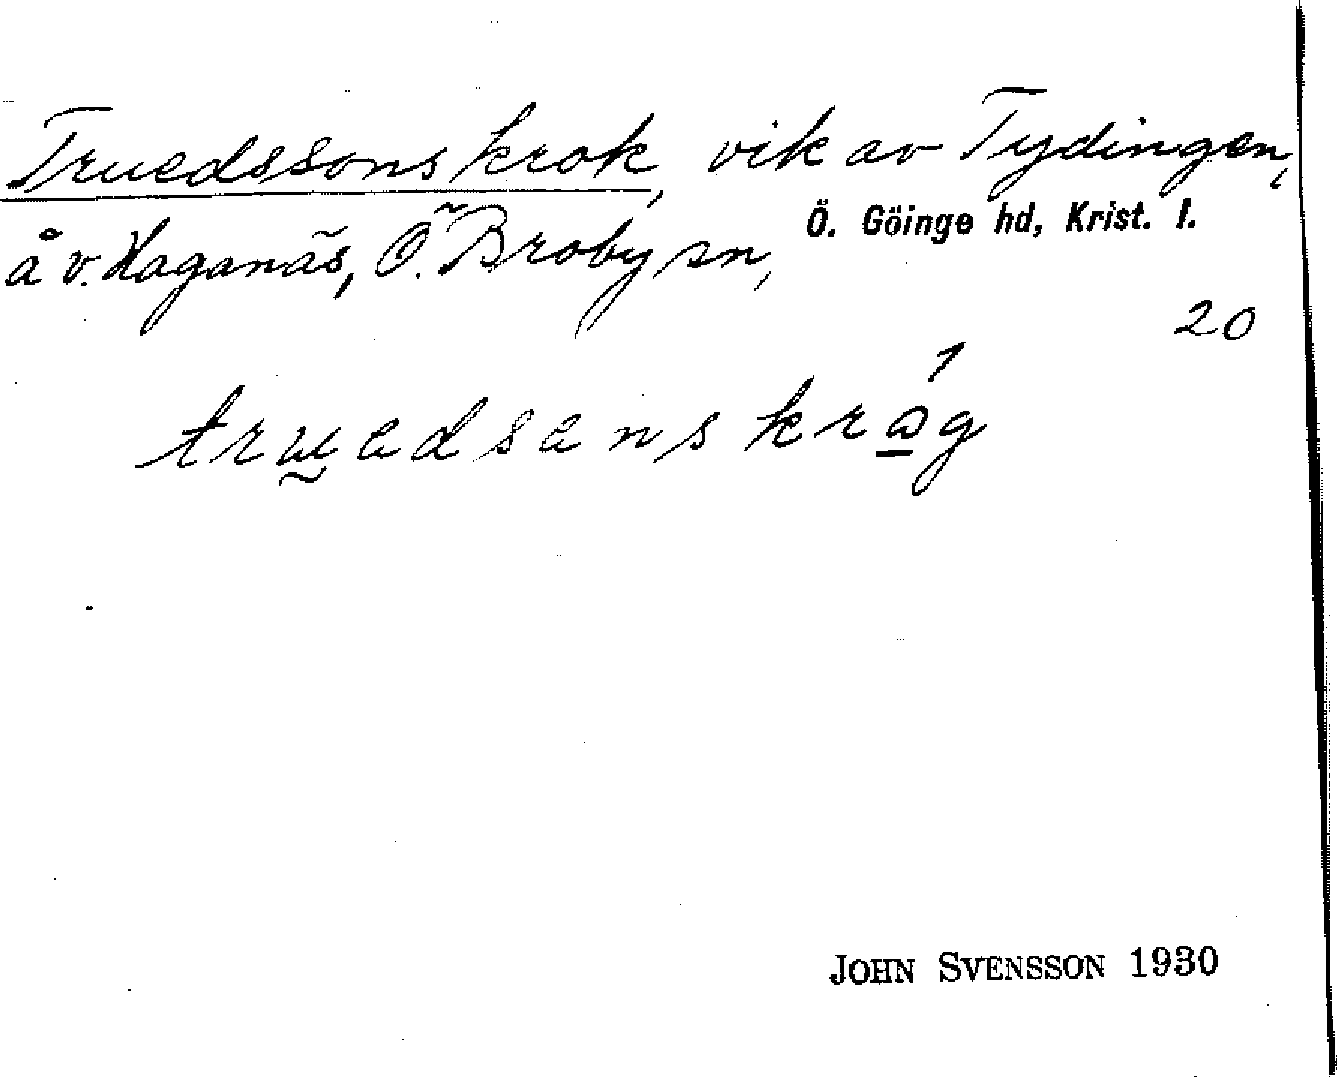 Truedssons krok, vik av Tydingen,
å v. Haganäs, Ö. Broby sn,
Ö. Göinge hd, Krist. l.
20
truedsens kråg
JOHN SVENSSON 1930